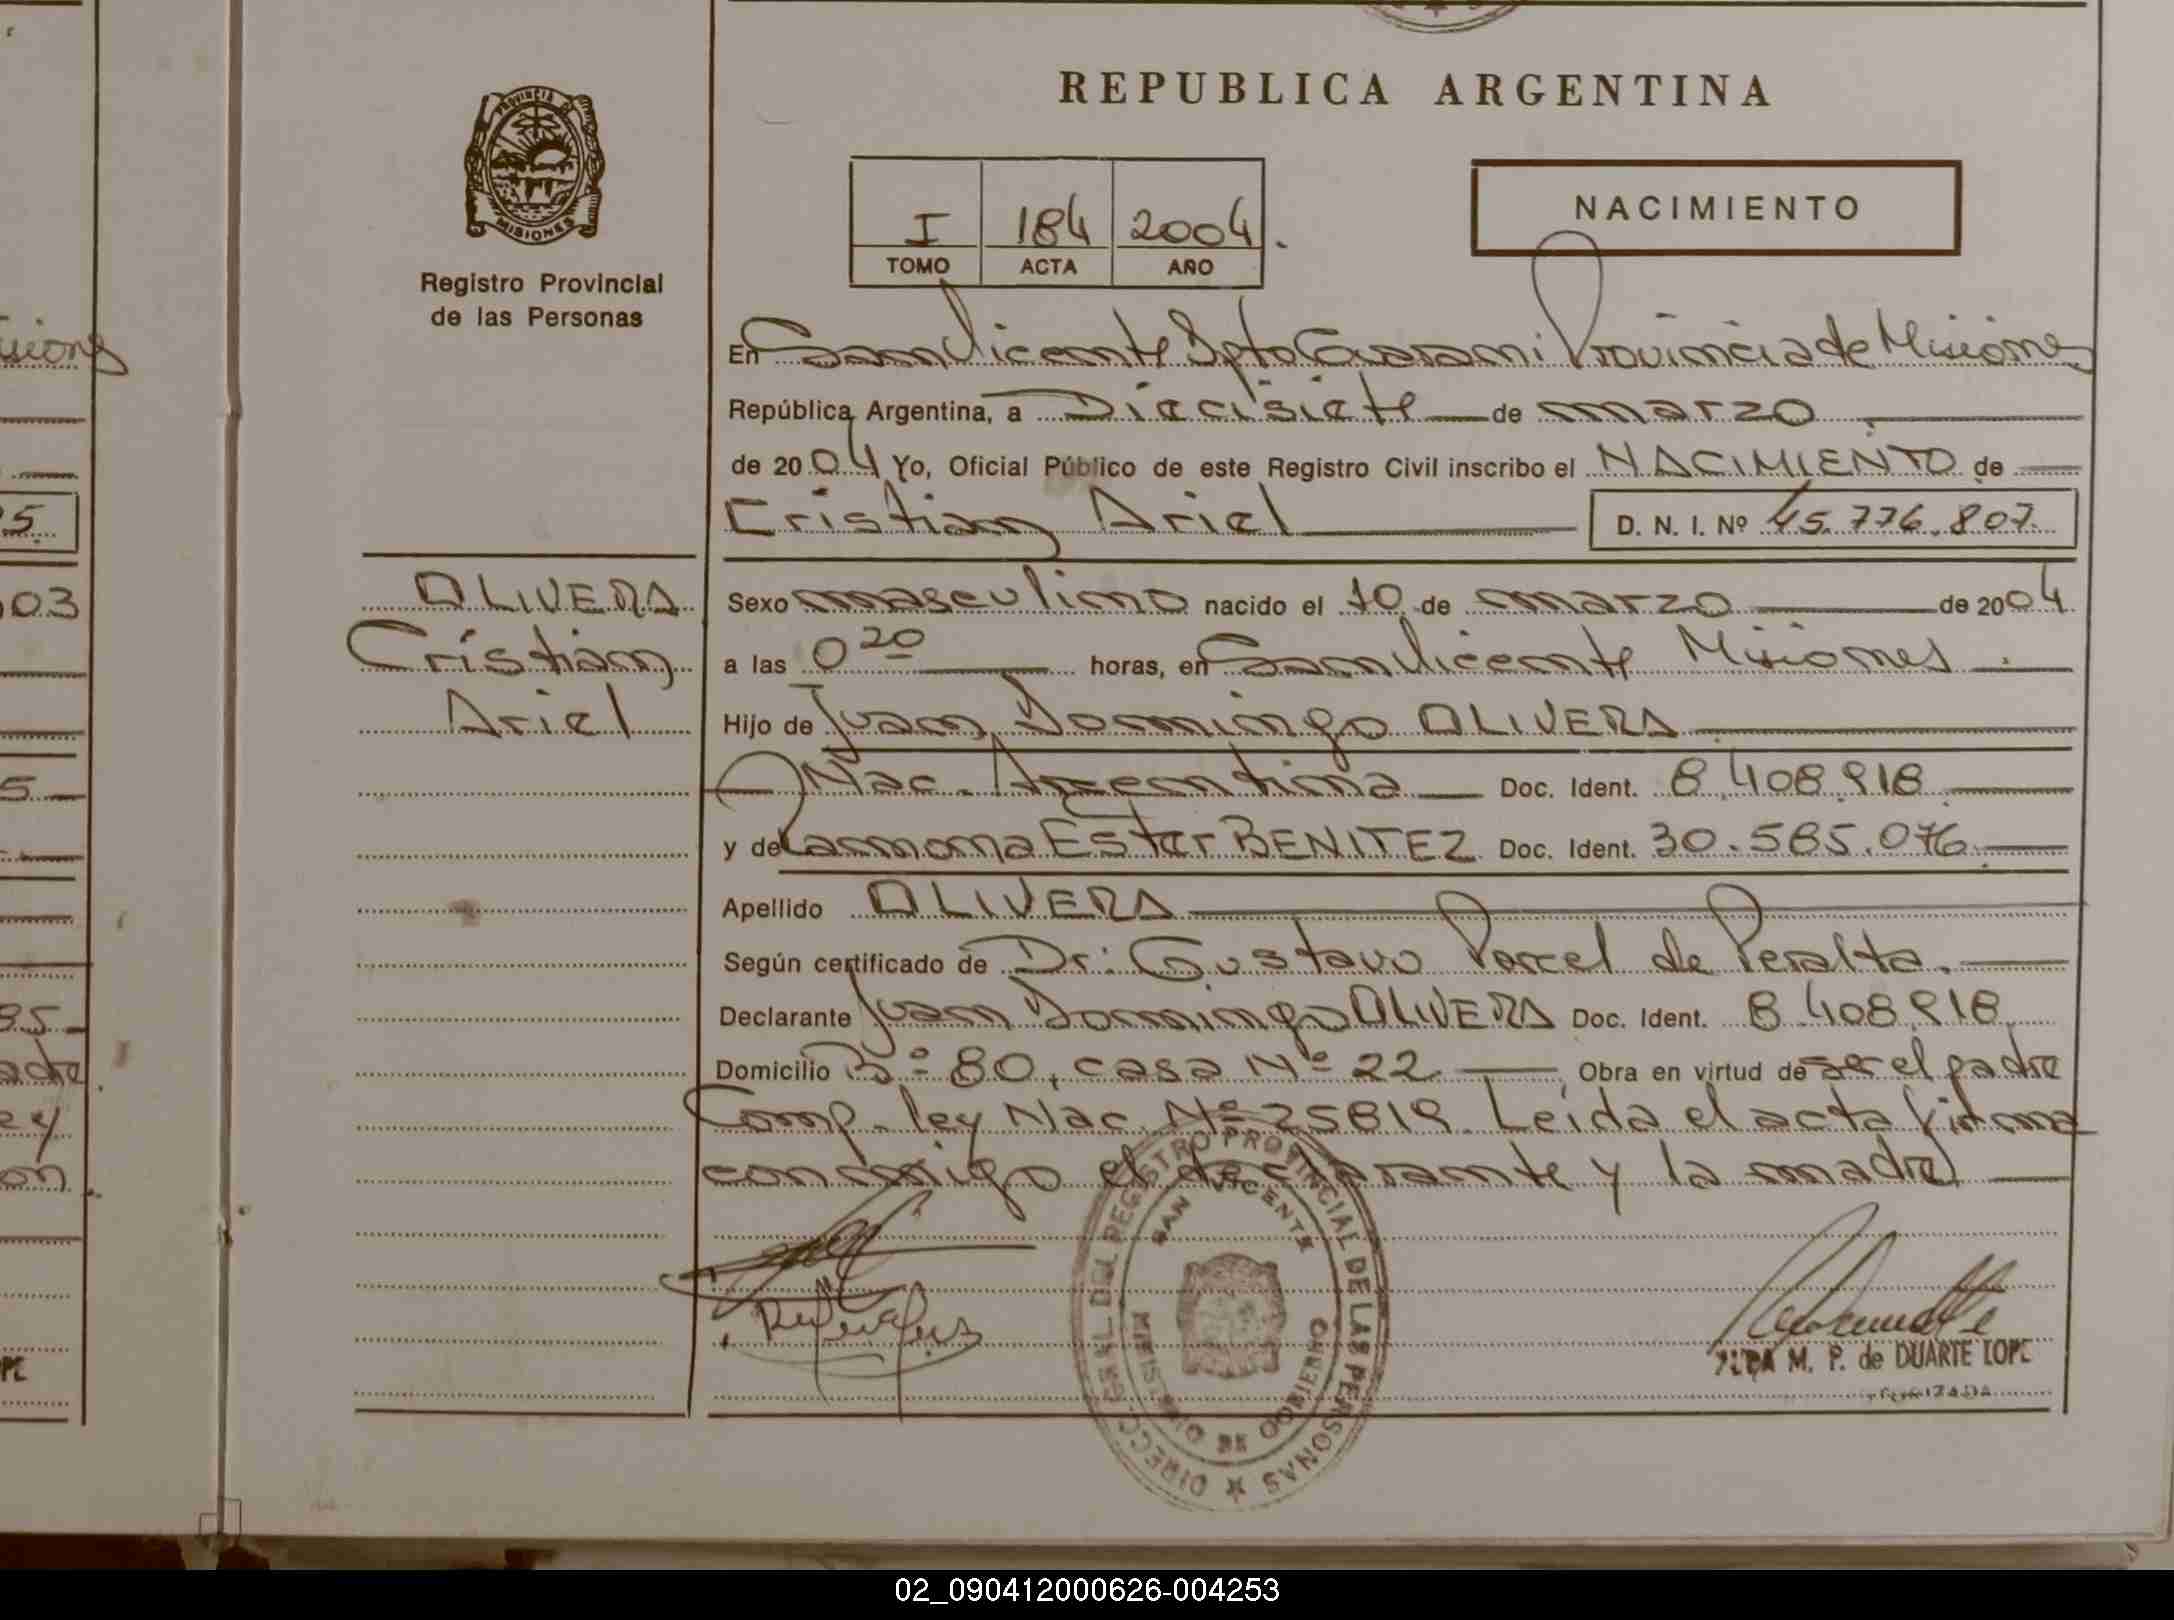 REPUBLICA ARGENTINA
PROVINCIA DE
MISIONES
Registro Provincial
de las Personas
I 184 2004.
TOMO ACTA AÑO
NACIMIENTO
En San Vicente Dpto Guarani Provincia de Misiones
República Argentina, a Diecisiete de marzo
de 2004 Yo, Oficial Público de este Registro Civil inscribo el NACIMIENTO de
Cristian Ariel D. N. I. Nº 45.776.807
OLIVERA
Cristian
Ariel
Sexo masculino nacido el 10 de marzo de 2004
a las 0 20 horas, en San Vicente Misiones
Hijo de Juan Domingo OLIVERA
Nac. Argentina Doc. Ident. 8.408.918
y de Ramona Ester BENITEZ Doc. Ident. 30.585.076
Apellido OLIVERA
Según certificado de Dr: Gustavo Porcel de Peralta.
Declarante Juan Domingo OLIVERA Doc. Ident. 8.408.918
Domicilio Bº 80, casa Nº 22 Obra en virtud de ser el padre
Comp. ley Nac. Nº 25819. Leida el acta firma
conmigo el declarante y la madre
DIRECC. GRAL DEL REGISTRO PROVINCIAL DE LAS PERSONAS
SAN VICENTE
MINISTERIO DE GOBIERNO
M. P. de DUARTE LOPE
isiones
5.
03
5
95
adre
ey
on
OPE
02_090412000626-004253